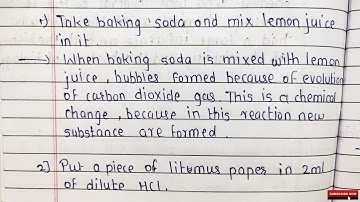 1) Take baking soda and mix lemon juice
in it.
→ When baking soda is mixed with lemon
juice, bubbles formed because of evolution
of carbon dioxide gas. This is a chemical
change, because in this reaction new
substance are formed.
2) Put a piece of litumus paper in 2ml
of dilute HCl.